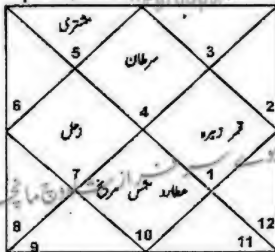 مشتری
5
سرطان
3
6
2
زحل
4
قمر زہرہ
7
عطارد شمس مریخ
1
8
9
10
12
11